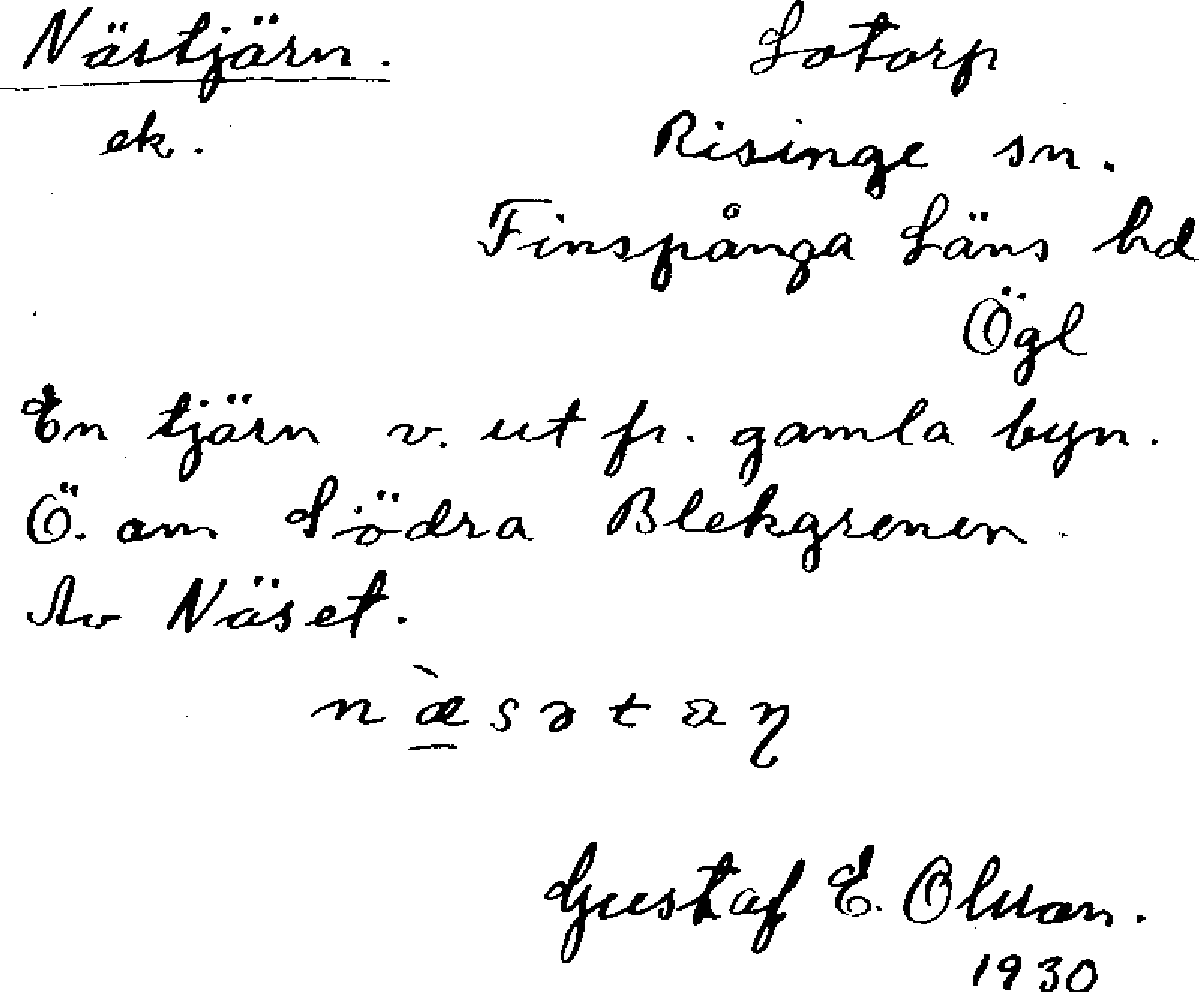 Nästjärn. Lotorp
ek. Risinge sn.
Finspånga Läns hd
Ögl
En tjärn v. ut fr. gamla byn.
Ö. om Södra Blekgrenen.
Av Näset.
Gustaf E. Olsson.
1930